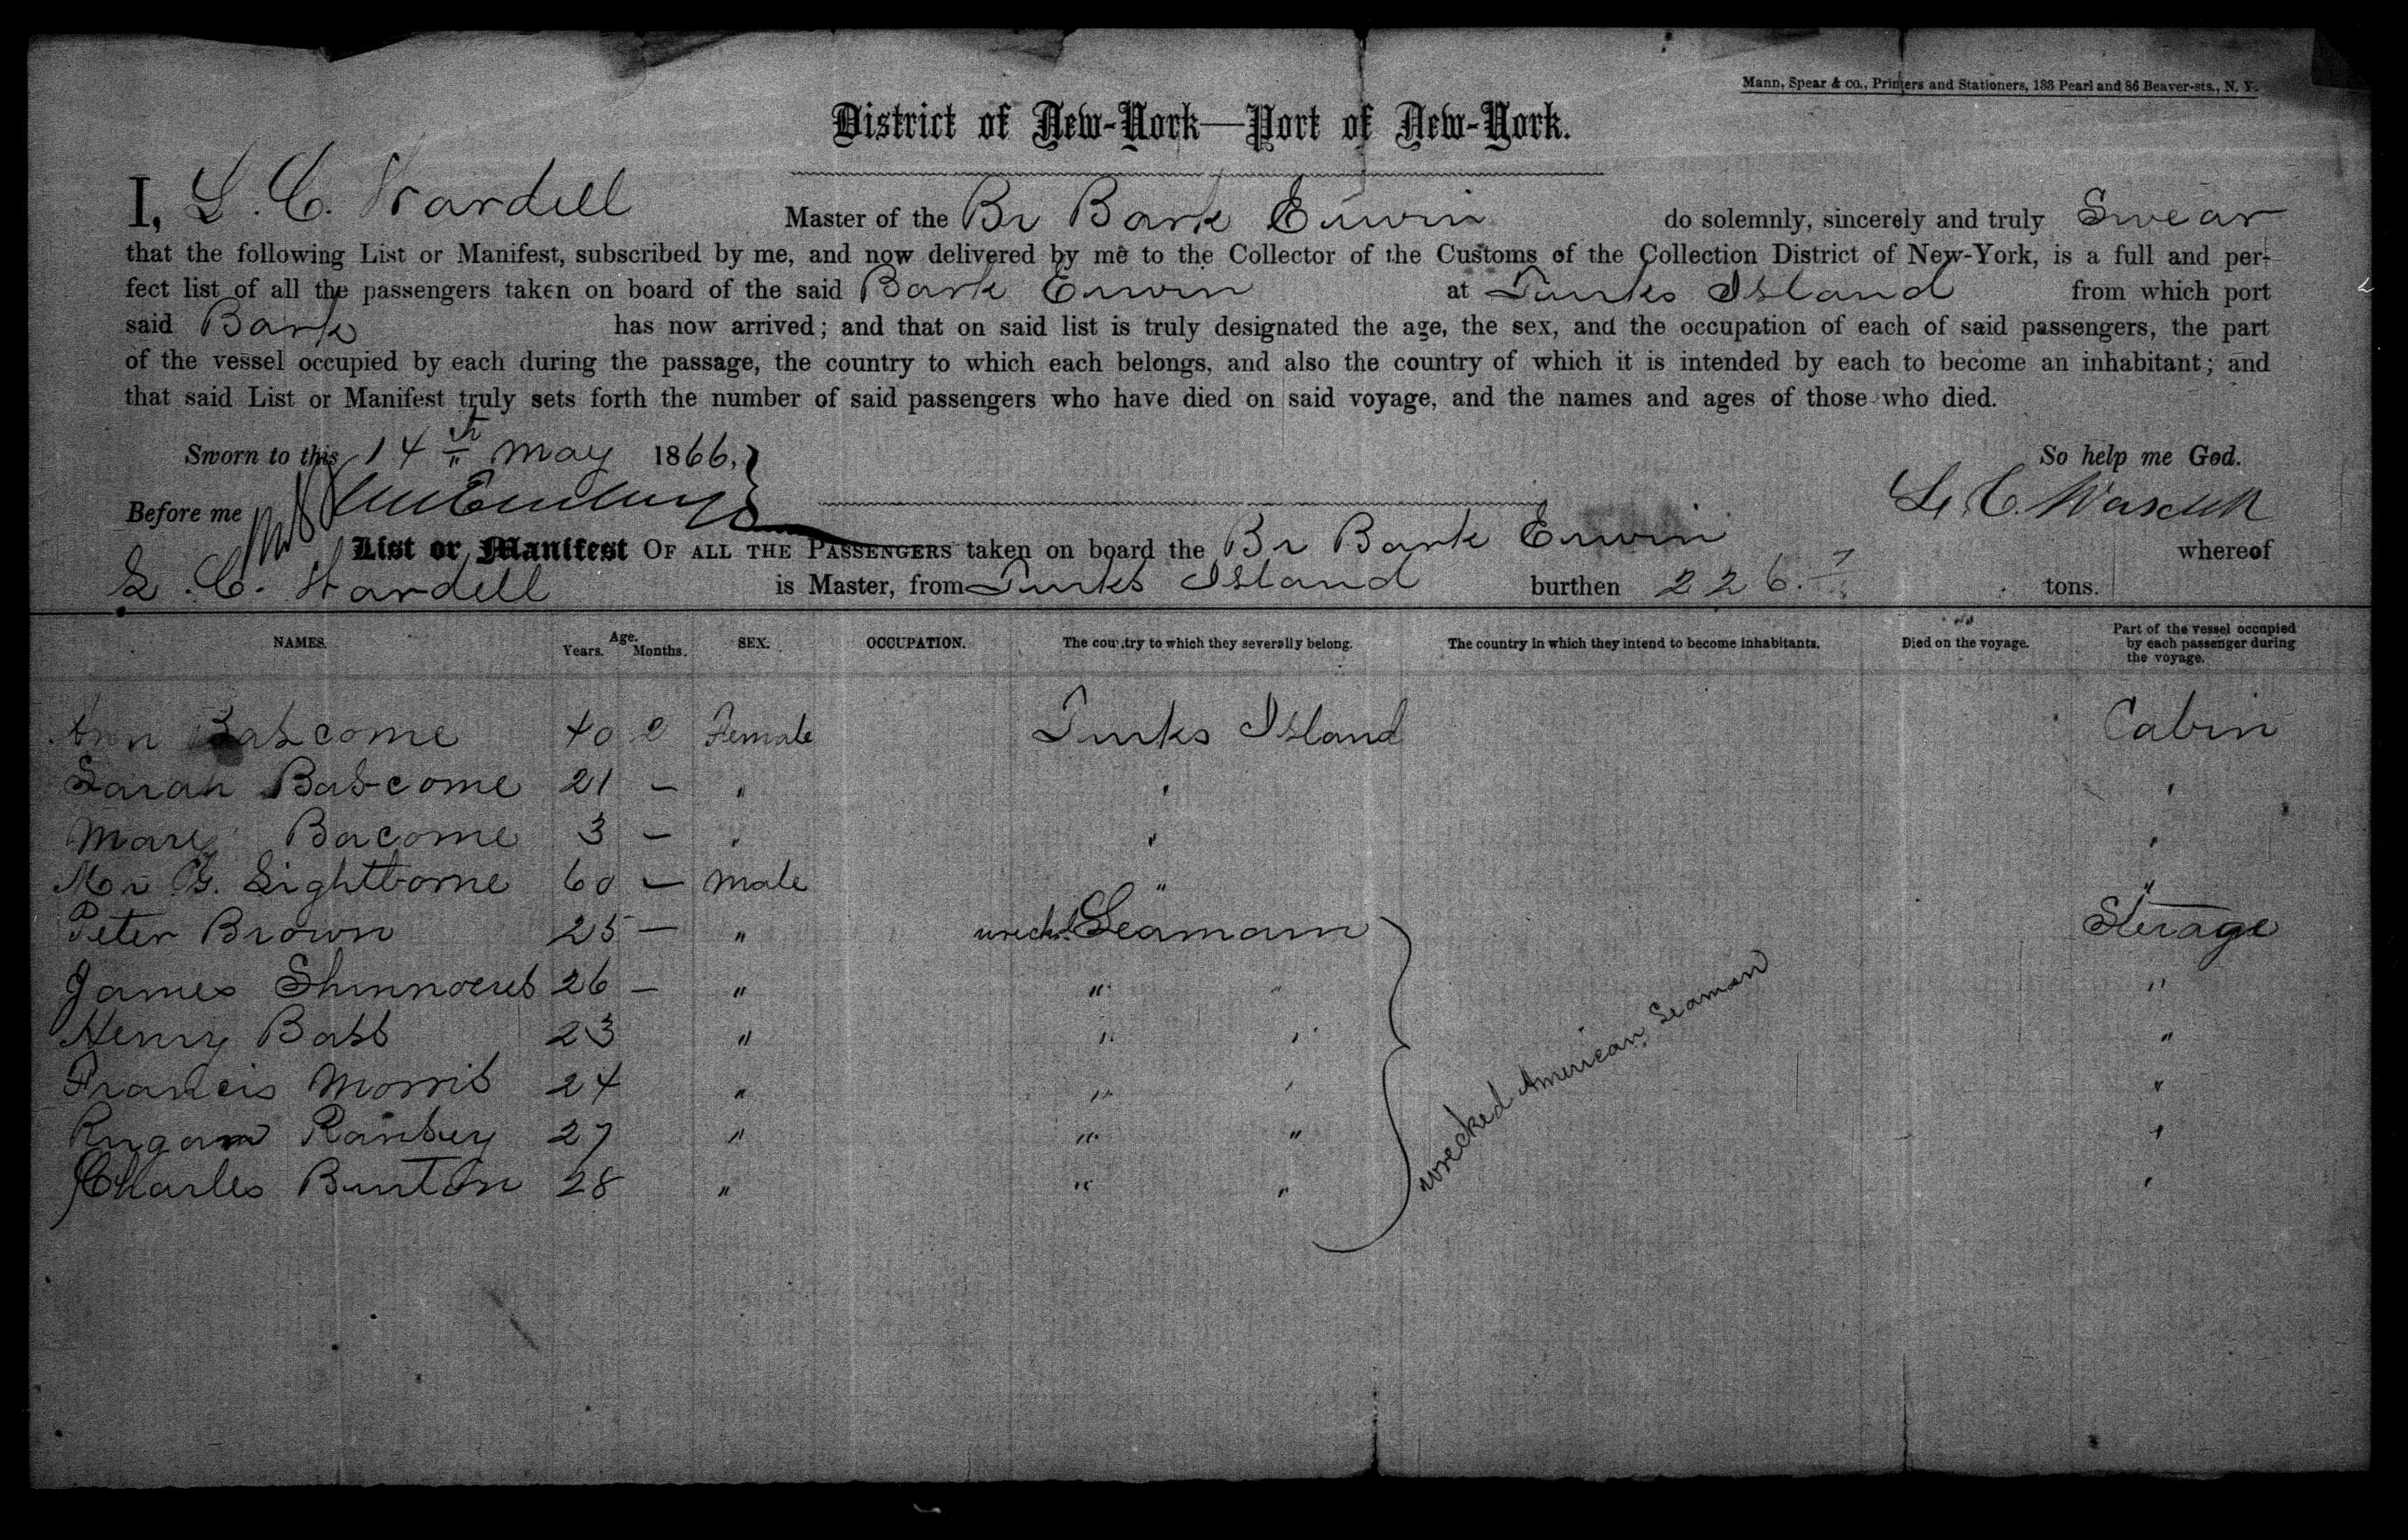 Mann, Spear & co., Printers and Stationers, 188 Pearl and 86 Beaver-sts., N. Y.
District of New-York—Port of New-York.
I, L. C. Wardell Master of the Br Bark Erwin do solemnly, sincerely and truly Swear
that the following List or Manifest, subscribed by me, and now delivered by me to the Collector of the Customs of the Collection District of New-York, is a full and per-
fect list of all the passengers taken on board of the said Bark Erwin at Turks Island from which port
said Bark has now arrived; and that on said list is truly designated the age, the sex, and the occupation of each of said passengers, the part
of the vessel occupied by each during the passage, the country to which each belongs, and also the country of which it is intended by each to become an inhabitant; and
that said List or Manifest truly sets forth the number of said passengers who have died on said voyage, and the names and ages of those who died.
Sworn to this 14th May 1866, So help me God.
Before me L. C. Wardell
List or Manifest OF ALL THE PASSENGERS taken on board the Br Bark Erwin whereof
L. C. Wardell is Master, from Turks Island burthen 226. tons.
NAMES. Age. Years. Months. SEX. OCCUPATION. The country to which they severally belong. The country in which they intend to become inhabitants. Died on the voyage. Part of the vessel occupied by each passenger during the voyage.
Ann Bascome 40 2 Female Turks Island Cabin
Sarah Bascome 21 — " " "
Mary Bacome 3 — " " "
Mr G. Lightborne 60 — Male " "
Peter Brown 25 — " wreckd Seamam Sterage
James 26 — " " " "
Henry Bass 23 " " " "
Francis Morris 24 " " " "
Ransey 27 " " " "
Charles Burton 28 " " " "
wrecked American Seaman